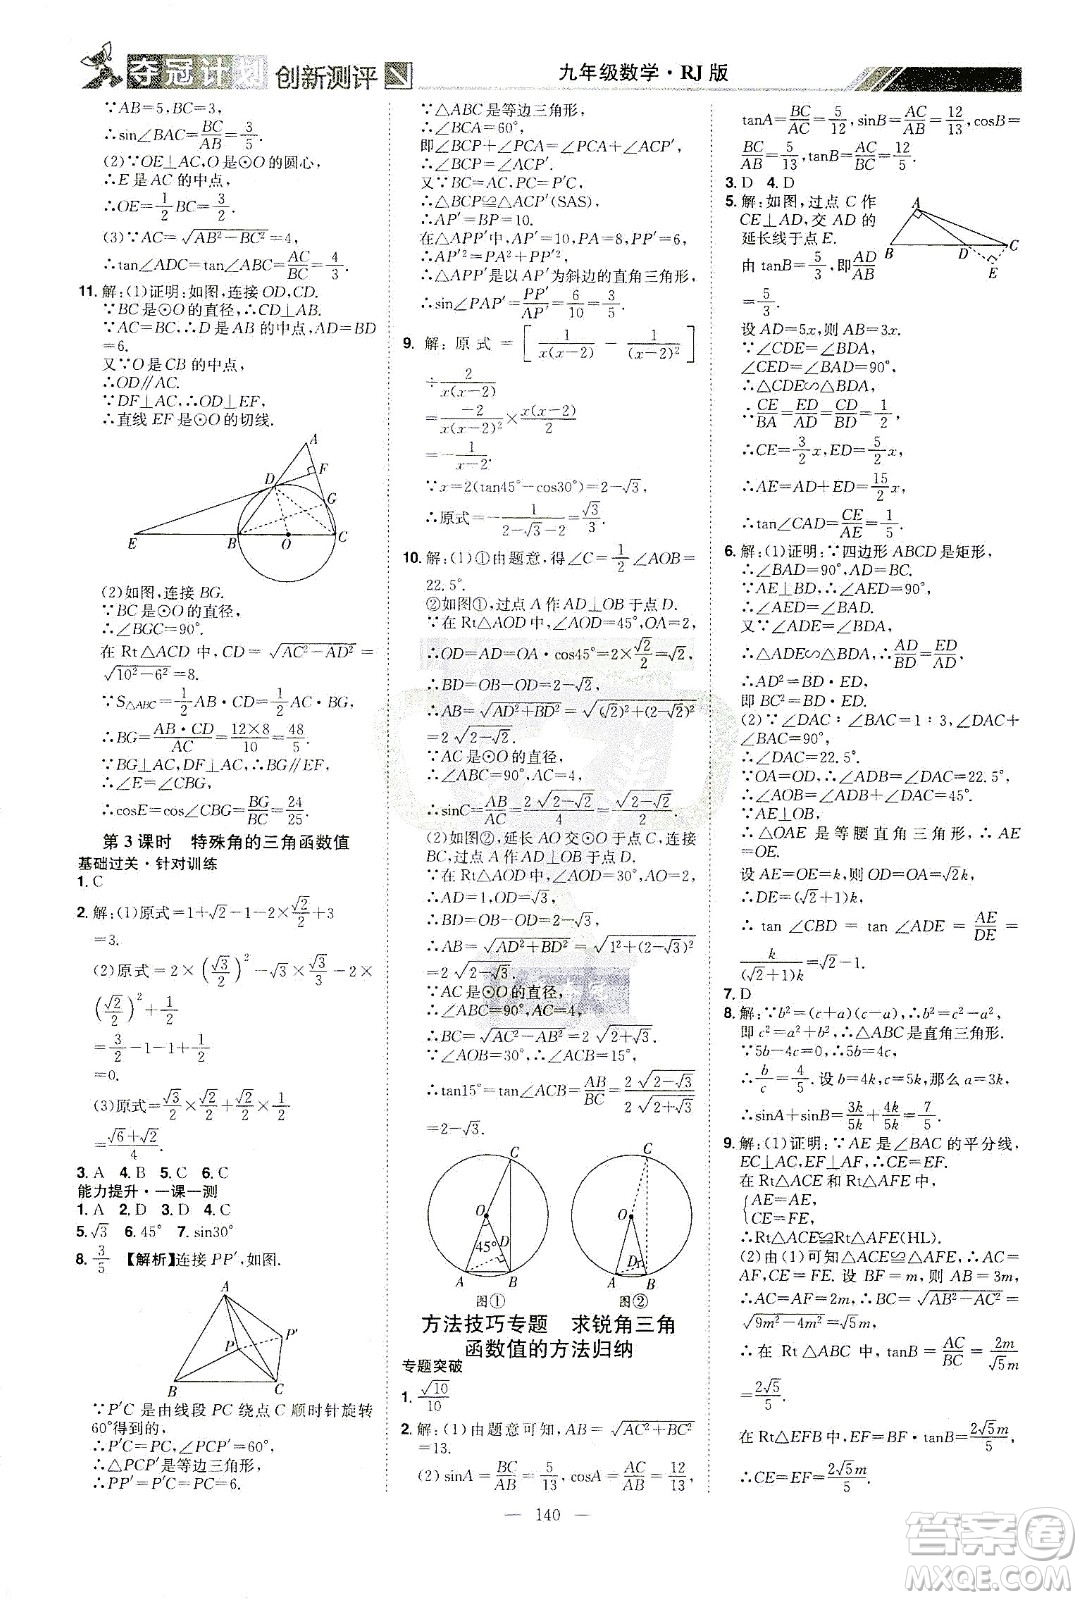 夺冠计划 创新测评
九年级数学·RJ版
∵AB=5,BC=3,
∴sin∠BAC=BC/AB=3/5.
(2)∵OE⊥AC,O是⊙O的圆心,
∴E是AC的中点,
∴OE=1/2BC=3/2.
(3)∵AC=√(AB²-BC²)=4,
∴tan∠ADC=tan∠ABC=AC/BC=4/3.
11.解:(1)证明:如图,连接OD,CD.
∵BC是⊙O的直径,∴CD⊥AB.
∵AC=BC,∴D是AB的中点,AD=BD
=6.
又∵O是CB的中点,
∴OD∥AC.
∵DF⊥AC,∴OD⊥EF.
∴直线EF是⊙O的切线.
A
D
F
G
E
B
O
C
(2)如图,连接BG.
∵BC是⊙O的直径,
∴∠BGC=90°.
在Rt△ACD中,CD=√(AC²-AD²)=
√(10²-6²)=8.
∵S△ABC=1/2AB·CD=1/2AC·BG,
∴BG=AB·CD/AC=12×8/10=48/5.
∵BG⊥AC,DF⊥AC,∴BG∥EF,
∴∠E=∠CBG,
∴cosE=cos∠CBG=BG/BC=24/25.
第3课时 特殊角的三角函数值
基础过关·针对训练
1.C
2.解:(1)原式=1+√2-1-2×√2/2+3
=3.
(2)原式=2×(√3/2)²-1/2÷1/2-
(√2/2)²×2+1/2
=3/2-1-1+1/2
=0.
(3)原式=√3/2×√2/2+√2/2×1/2
=(√6+√2)/4.
3.A 4.B 5.C 6.C
能力提升·一课一测
1.A 2.D 3.D 4.A
5.√3 6.45° 7.sin30°
8.3/5 【解析】连接PP′,如图.
A
P′
P
B
C
∵P′C是由线段PC绕点C顺时针旋转
60°得到的,
∴P′C=PC,∠PCP′=60°,
∴△PCP′是等边三角形,
∴PP′=P′C=PC=6.
∵△ABC是等边三角形,
∴∠BCA=60°,
即∠BCP+∠PCA=∠PCA+∠ACP′,
∴∠BCP=∠ACP′.
又∵BC=AC,PC=P′C,
∴△BCP≌△ACP′(SAS),
∴AP′=BP=10.
在△APP′中,∵AP′=10,PA=8,PP′=6,
∴AP′²=PA²+PP′²,
∴△APP′是以AP′为斜边的直角三角形,
∴sin∠PAP′=PP′/AP′=6/10=3/5.
9.解:原式=[1/(x(x-2))-1/(x(x-2)²)]
÷2/(x(x-2))
=-2/(x(x-2)²)×x(x-2)/2
=-1/(x-2).
∵x=2(tan45°-cos30°)=2-√3,
∴原式=-1/(2-√3-2)=√3/3.
10.解:(1)①由题意,得∠C=1/2∠AOB=
22.5°.
②如图①,过点A作AD⊥OB于点D.
∵在Rt△AOD中,∠AOD=45°,OA=2,
∴OD=AD=OA·cos45°=2×√2/2=√2,
∴BD=OB-OD=2-√2,
∴AB=√(AD²+BD²)=√((√2)²+(2-√2)²)=
2√(2-√2).
∵AC是⊙O的直径,
∴∠ABC=90°,AC=4,
∴sinC=AB/AC=2√(2-√2)/4=√(2-√2)/2.
(2)如图②,延长AO交⊙O于点C,连接
BC,过点A作AD⊥OB于点D.
∵在Rt△AOD中,∠AOD=30°,OA=2,
∴AD=1,OD=√3,
∴BD=OB-OD=2-√3,
∴AB=√(AD²+BD²)=√(1²+(2-√3)²)=
2√(2-√3).
∵AC是⊙O的直径,
∴∠ABC=90°,AC=4,
∴BC=√(AC²-AB²)=2√(2+√3).
∵∠AOB=30°,∴∠ACB=15°,
∴tan15°=tan∠ACB=AB/BC=2√(2-√3)/2√(2+√3)
=2-√3.
C
O
45°
D
A
B
图①
C
O
D
A
B
图②
方法技巧专题 求锐角三角
函数值的方法归纳
专题突破
1.√10/10
2.解:(1)由题意可知,AB=√(AC²+BC²)
=13.
(2)sinA=BC/AB=5/13,cosA=AC/AB=12/13,
tanA=BC/AC=5/12,sinB=AC/AB=12/13,cosB=
BC/AB=5/13,tanB=AC/BC=12/5.
3.D 4.D
5.解:如图,过点C作
CE⊥AD,交AD的
延长线于点E.
由tanB=5/3,即AD/AB
=5/3.
A
B
D
C
E
设AD=5x,则AB=3x.
∵∠CDE=∠BDA,
∠CED=∠BAD=90°,
∴△CDE∽△BDA,
∴CE/BA=ED/AD=CD/BD=1/2,
∴CE=3/2x,DE=5/2x,
∴AE=AD+DE=15/2x,
∴tan∠CAD=CE/AE=1/5.
6.解:(1)证明:∵四边形ABCD是矩形,
∴∠BAD=90°,AD=BC.
∵AE⊥BD,∴∠AED=90°,
∴∠AED=∠BAD.
又∵∠ADE=∠BDA,
∴△ADE∽△BDA,∴AD/BD=ED/AD,
∴AD²=BD·ED,
即BC²=BD·ED.
(2)∵∠DAC∶∠BAC=1∶3,∠DAC+
∠BAC=90°,
∴∠DAC=22.5°.
∵OA=OD,∴∠ADE=∠DAC=22.5°,
∴∠AOE=∠DAC+∠ADE=45°.
∵AE⊥OB,
∴△OAE是等腰直角三角形,∴AE
=OE.
设AE=OE=k,则OD=OA=√2k,
∴DE=(√2+1)k,
∴tan∠CBD=tan∠ADE=AE/DE=
k/((√2+1)k)=√2-1.
7.D
8.解:∵b²=(c+a)(c-a)=c²-a²,
即c²=a²+b²,∴△ABC是直角三角形.
∵5b-4c=0,∴5b=4c,
∴b/c=4/5.设b=4k,c=5k,那么a=3k,
∴sinA+sinB=3k/5k+4k/5k=7/5.
9.解:(1)证明:∵AE是∠BAC的平分线,
EC⊥AC,EF⊥AF,∴CE=EF.
在Rt△ACE和Rt△AFE中,
{AE=AE,
CE=FE,
∴Rt△ACE≌Rt△AFE(HL).
(2)由(1)可知△ACE≌△AFE,∴AC=
AF,CE=FE.设BF=m,则AB=3m,
∴AC=AF=2m,∴BC=√(AB²-AC²)=
√(9m²-4m²)=√5m,
∴在Rt△ABC中,tanB=AC/BC=2m/√5m=
2√5/5.
在Rt△EFB中,EF=BF·tanB=2√5m/5,
∴CE=EF=2√5m/5.
— 140 —
答案圈
MXQE.COM